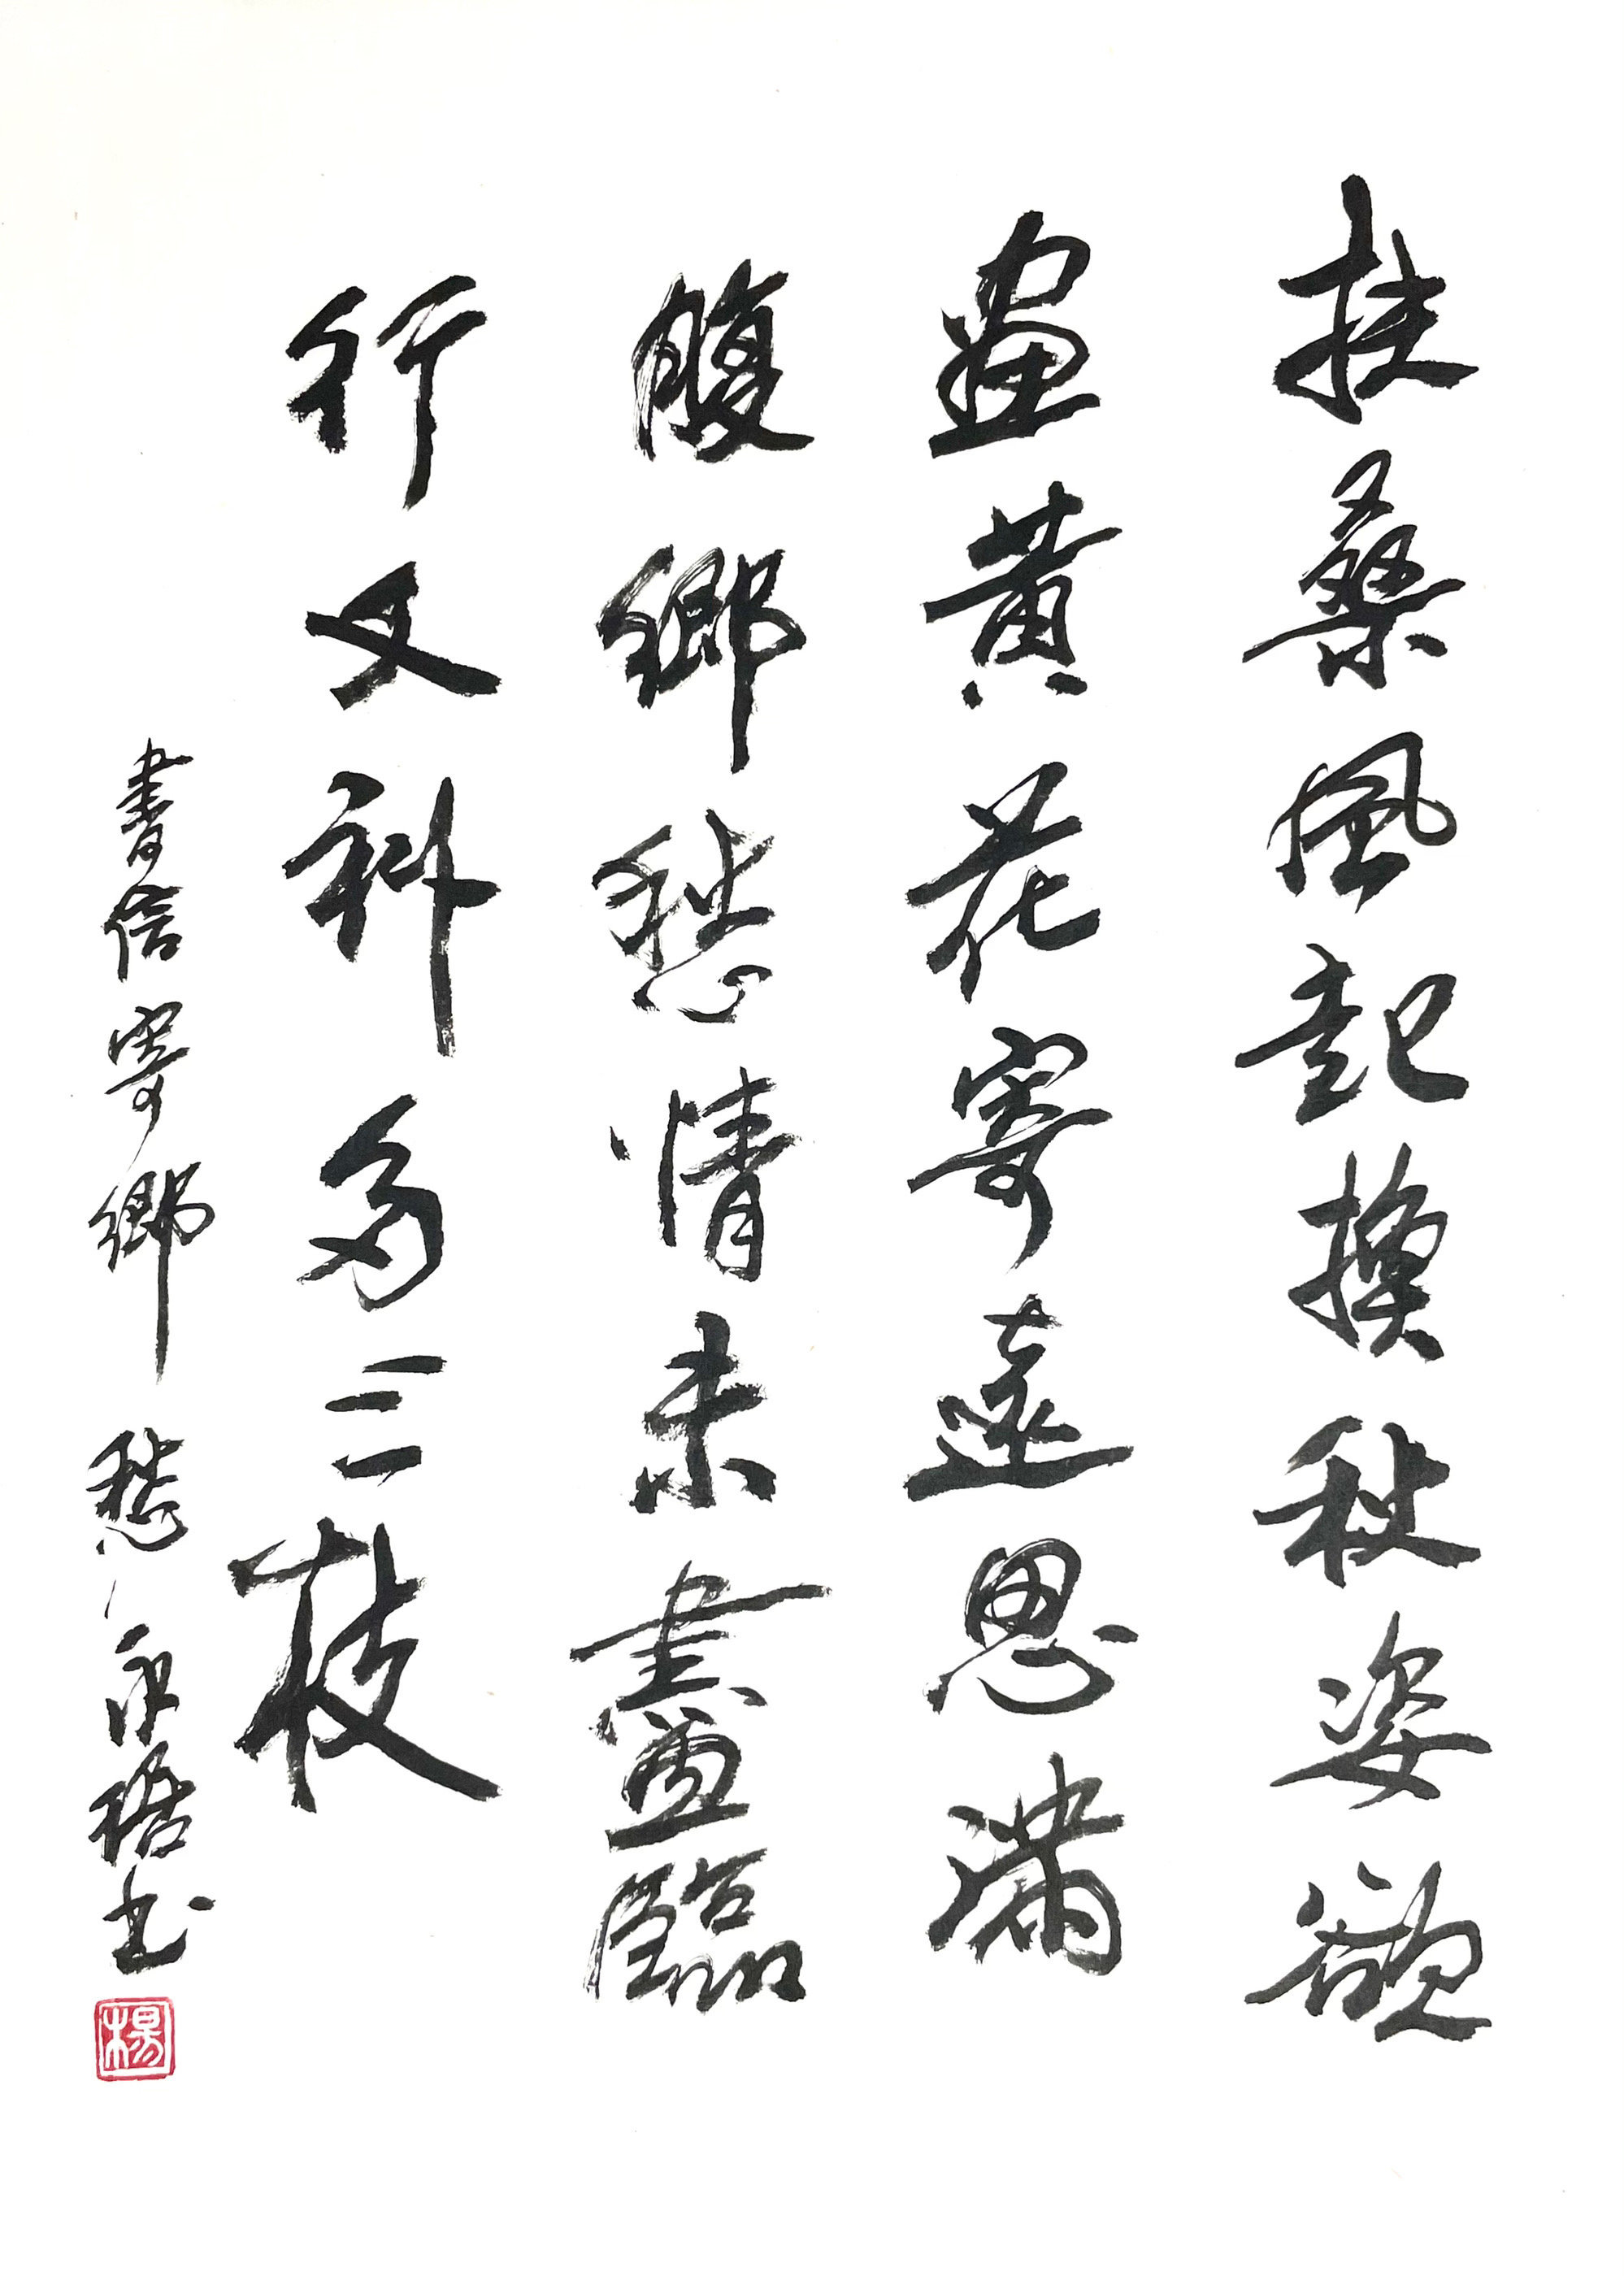 扶桑風起換秋姿欲
畫黃花寄遠思滿
腹鄉愁情未盡臨
行又科多三枝
書信寄鄉愁 永裙书
楊